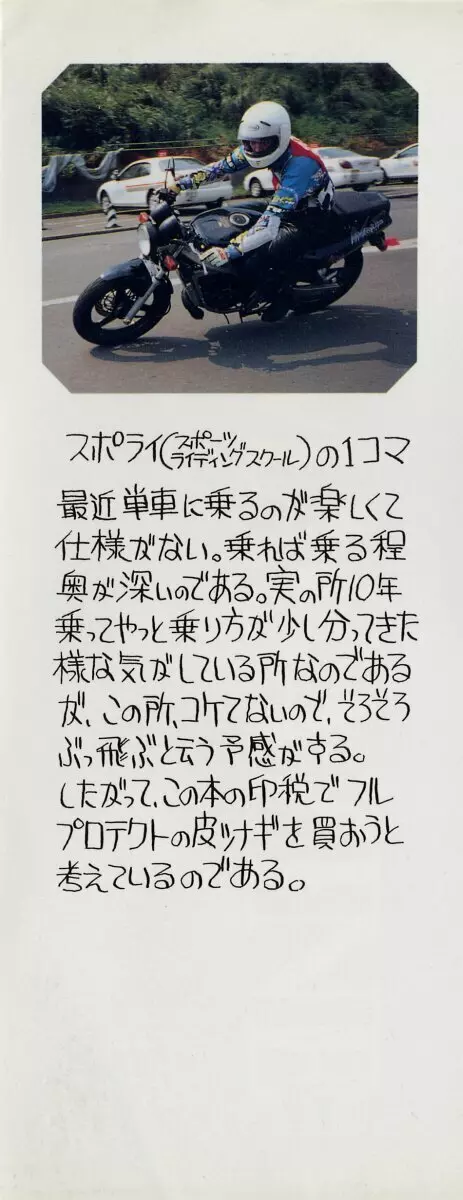 スポライ(スポーツライディングスクール)の1コマ
最近単車に乗るのが楽しくて
仕様がない。乗れば乗る程
奥が深いのである。実の所10年
乗ってやっと乗り方が少し分ってきた
様な気がしている所なのである
が、この所、コケてないので、そろそろ
ぶっ飛ぶと云う予感がする。
したがって、この本の印税でフル
プロテクトの皮ツナギを買おうと
考えているのである。